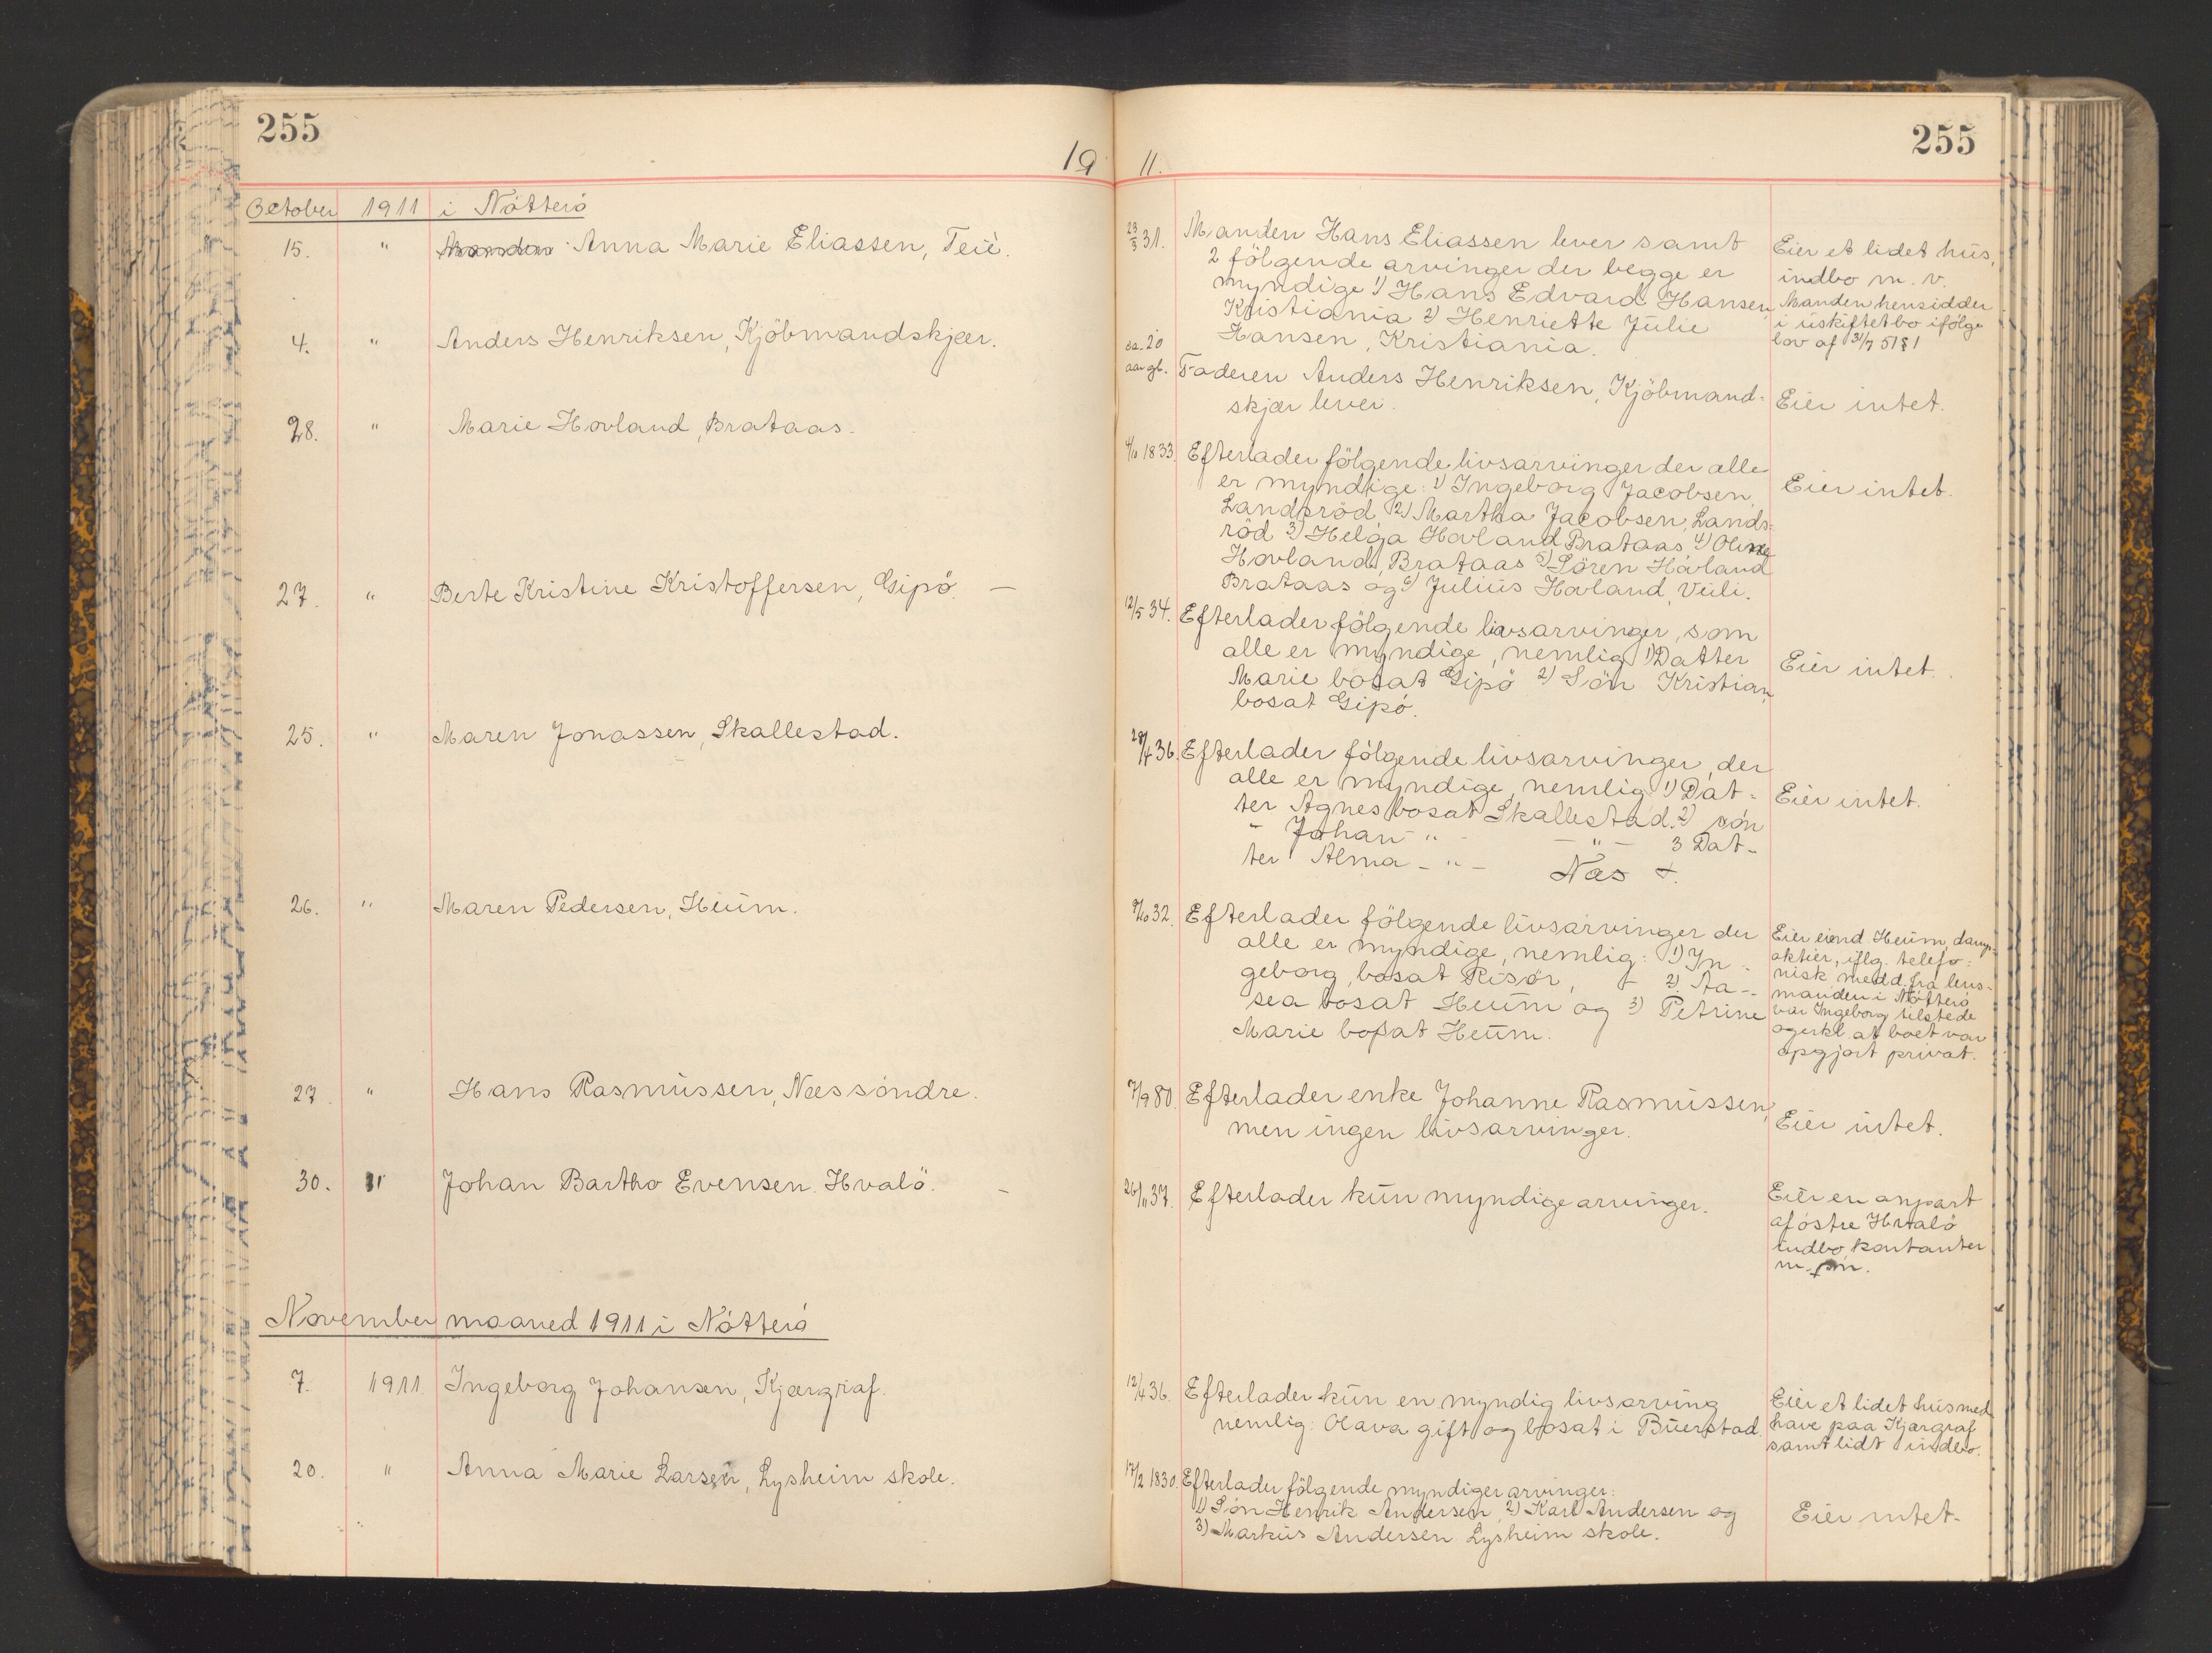 255
255
19 11.
October 1911 i Nötterö
15. " Manden Anna Marie Eliassen, Teie.
23/3 31. Manden Hans Eliassen lever samt
2 fölgende arvinger der begge er
myndige 1) Hans Edvard Hansen
Kristiania 2) Henriette Julie
Hansen, Kristiania.
Eier et lidet hus,
indbo m. v.
Manden hensidder
i uskiftet bo ifölge
lov af 31/7 51 § 1
4. " Anders Henriksen, Kjöbmandskjær.
ca. 20
aar gl. Faderen Anders Henriksen, Kjöbmand-
skjær lever.
Eier intet.
28. " Marie Hovland, Brataas.
4/10 1833. Efterlader fölgende livsarvinger der alle
er myndige: 1) Ingeborg Jacobsen
Landsröd, 2) Martha Jacobsen, Lands-
röd 3) Helga Hovland Brataas, 4) Oline
Hovland, Brataas 5) Sören Hovland
Brataas og 6) Julius Hovland, Veüli.
Eier intet.
27. " Berte Kristine Kristoffersen, Gipö. —
12/5 34. Efterlader fölgende livsarvinger, som
alle er myndige, nemlig 1) Datter
Marie bosat Gipö 2) Sön Kristian
bosat Gipö.
Eier intet.
25. " Maren Jonassen, Skallestad.
28/4 36. Efterlader fölgende livsarvinger, der
alle er myndige, nemlig 1) Dat-
ter Agnes bosat Skallestad. 2) sön
- Johan - " - - " - 3 Dat-
ter Alma - " - Næs +.
Eier intet.
26. " Maren Pedersen, Heum.
9/10 32. Efterlader fölgende livsarvinger der
alle er myndige, nemlig: 1) In-
geborg, bosat Risör, + 2). Aa-
sea bosat Heum og 3) Petrine
Marie bosat Heum.
Eier eiend Heum, damp-
aktier, iflg. telefo-
nisk medd. fra lens-
manden i Nötterö
var Ingeborg tilstede
og erkl. at boet var
opgjort privat.
27. " Hans Rasmussen, Næssöndre.
7/9 80. Efterlader enke Johanne Rasmussen,
men ingen livsarvinger.
Eier intet.
30. " Johan Bartho Evensen. Hvalö. —
26/11 37. Efterlader kun myndige arvinger.
Eier en anpart
af östre Hvalö
indbo, kontanter
m.
November maaned 1911 i Nötterö
7. 1911. Ingeborg Johansen, Kjærgraf.
12/4 36. Efterlader kun en myndig livsarving
nemlig: Olava gift og bosat i Buerstad.
Eier et lidet hus med
have paa Kjærgraf
samt lidt indbo.
20. " Anna Marie Larsen, Lysheim skole.
17/2 1830. Efterlader fölgende myndiger arvinger:
1) Sön Henrik Andersen, 2) Karl Andersen og
3) Markus Andersen Lysheim skole.
Eier intet-